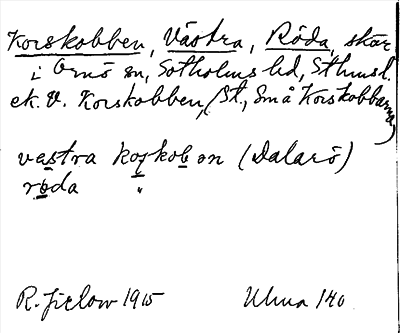 Korskobben, Västra, Röda, skär
i Ornö sn, Sotholms hd, Sthmsl.
ek. V. Korskobben, St., Små Korskobbarna
västra koʂkobən (Dalarö)
röda "
R. Jirlow 1915 Ulma 140